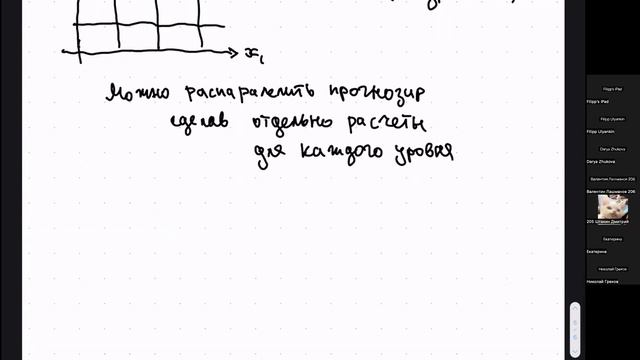 x₁
Можно распаралелить прогнозир
сделав отдельно расчеты
для каждого уровня
Filipp's iPad
Filipp's iPad
Filipp Ulyankin
Filipp Ulyankin
Darya Zhukova
Darya Zhukova
Валентин Лашманов 206
Валентин Лашманов 206
205 Штакин Дмитрий
Екатерина
Екатерина
Николай Греков
Николай Греков